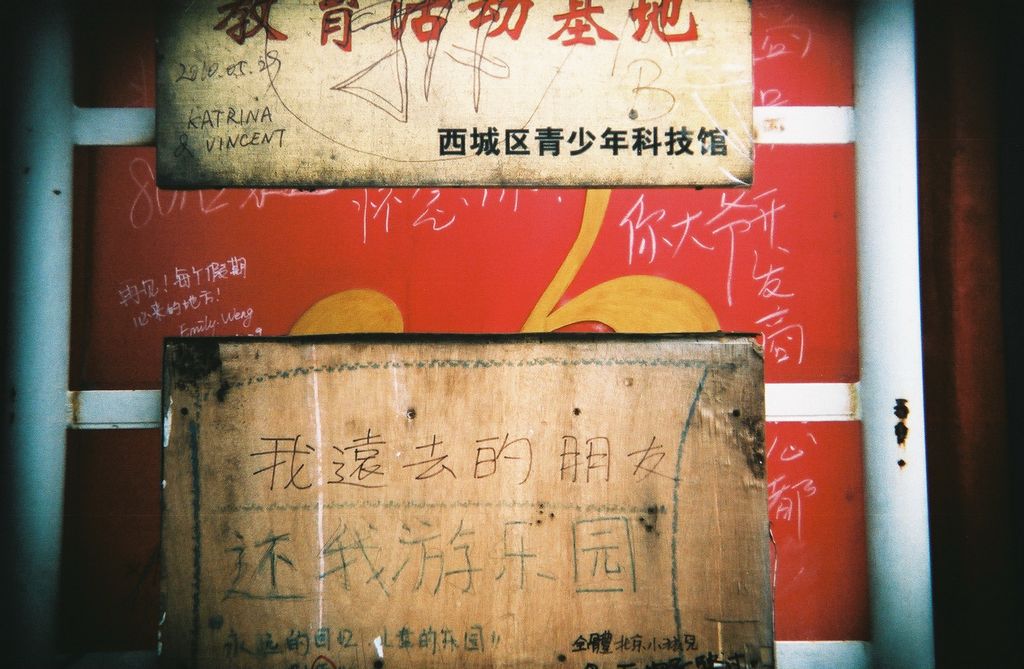 教育活动基地
2010.05.29
KATRINA
& VINCENT
B
西城区青少年科技馆
你大爷开
发商
再见！每个假期
必来的地方！
Emily.Weng
都
我遠去的朋友
还我游乐园
永远的回忆 儿童的乐园
全體北京小孩兒